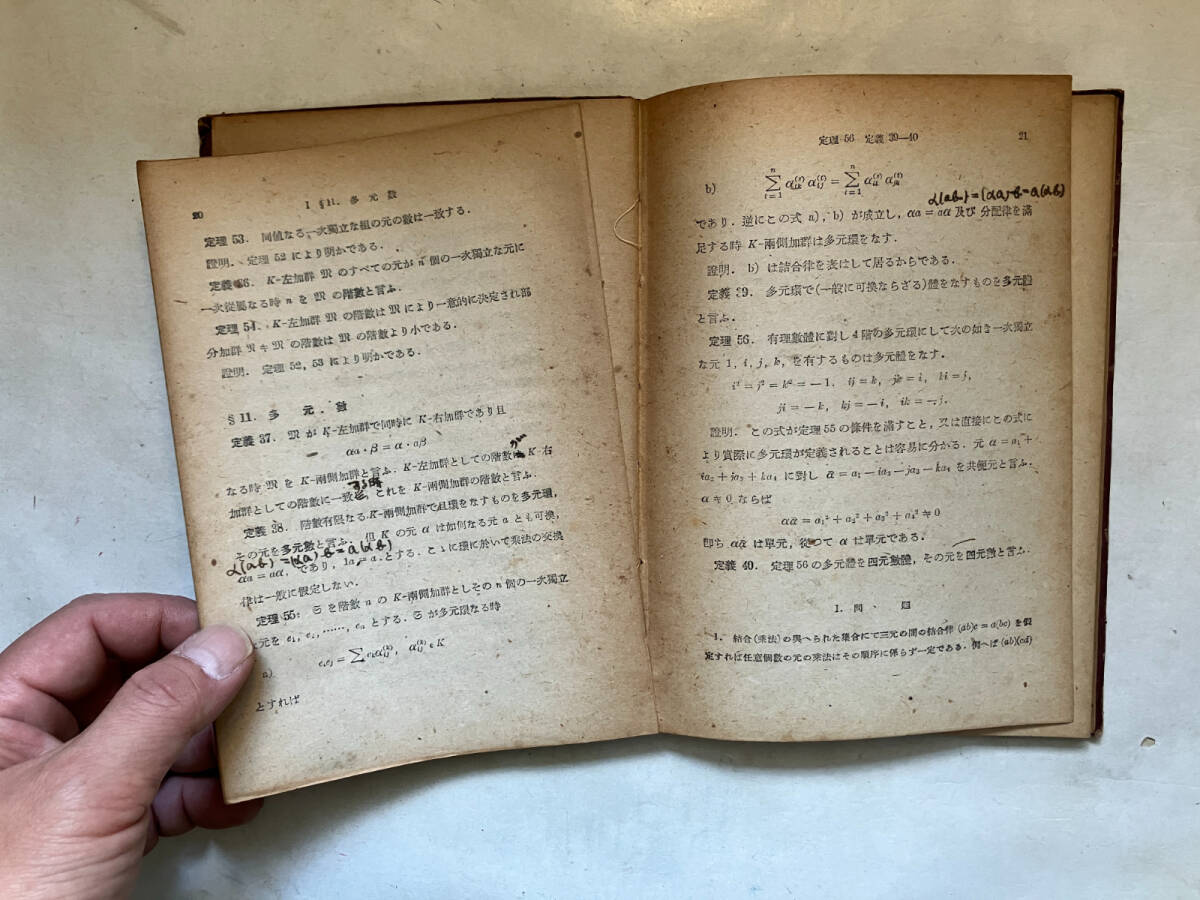 20
I §11. 多元數
定理 53. 同値なる一次獨立な組の元の數は一致する.
證明. 定理 52 により明かである.
定義 36. K-左加群 𝔐 のすべての元が n 個の一次獨立な元に
一次從屬なる時 n を 𝔐 の階數と言ふ.
定理 54. K-左加群 𝔐 の階數は 𝔐 により一意的に決定され部
分加群 𝔑 ≠ 𝔐 の階數は 𝔐 の階數より小である.
證明. 定理 52, 53 により明かである.
§11. 多元數
定義 37. 𝔐 が K-左加群で同時に K-右加群であり且
αa・β = α・aβ
なる時 𝔐 を K-兩側加群と言ふ. K-左加群としての階數が K-右
加群としての階數に一致する時, これを K-兩側加群の階數と言ふ.
定義 38. 階數有限なる K-兩側加群で且環をなすものを多元環,
その元を多元數と言ふ. 但 K の元 α は如何なる元 a とも可換,
α(ab) = (αa)b = a(αb)
αa = aα, であり, 1a = a とする. こゝに環に於いて乘法の交換
律は一般に假定しない.
定理 55. 𝔖 を階數 n の K-兩側加群としその n 個の一次獨立
な元を e₁, e₂, ……, eₙ とする. 𝔖 が多元環なる時
a) eᵢeⱼ = ∑ eₖαᵢⱼ⁽ᵏ⁾, αᵢⱼ⁽ᵏ⁾ ∈ K
とすれば
定理 56 定義 39—40 21
α(ab) = (αa)b = a(αb)
であり. 逆にこの式 a), b) が成立し, αa = aα 及び 分配律を滿
足する時 K-兩側加群は多元環をなす.
證明. b) は結合律を表はして居るからである.
定義 39. 多元環で(一般に可換ならざる)體をなすものを多元體
と言ふ.
定理 56. 有理數體に對し 4 階の多元環にして次の如き一次獨立
な元 1, i, j, k, を有するものは多元體をなす.
i² = j² = k² = −1, ij = k, jk = i, ki = j,
ji = −k, kj = −i, ik = −j.
證明. この式が定理 55 の條件を滿すこと, 又は直接にこの式に
より實際に多元環が定義されることは容易に分かる. 元 α = a₁ +
ia₂ + ja₃ + ka₄ に對し ᾱ = a₁ − ia₂ − ja₃ − ka₄ を共軛元と言ふ.
α ≠ 0 ならば
αᾱ = a₁² + a₂² + a₃² + a₄² ≠ 0
即ち αᾱ は單元, 從つて α は單元である.
定義 40. 定理 56 の多元體を四元數體, その元を四元數と言ふ.
I. 問題
1. 結合(乘法)の與へられた集合にて三元の間の結合律 (ab)c = a(bc) を假
定すれば任意個數の元の乘法はその順序に係らず一定である. 例へば (ab)(cd)